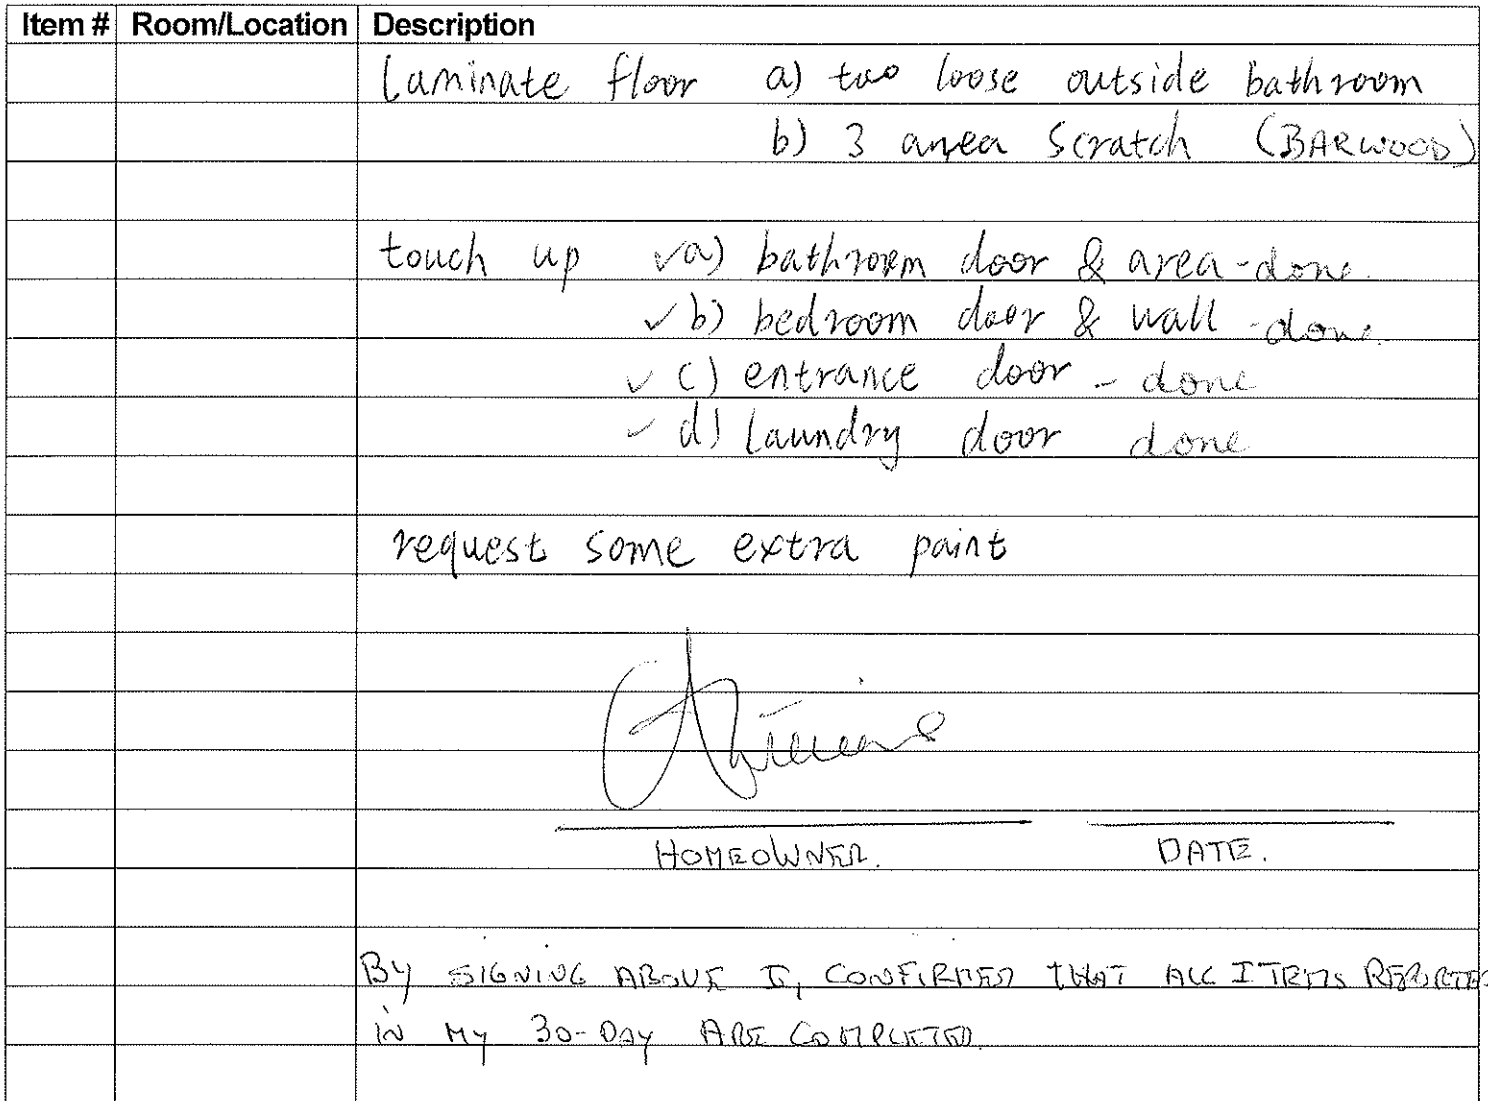 Item # Room/Location Description
Laminate floor a) two loose outside bathroom
b) 3 area scratch (BARWOOD)
touch up ✓a) bathroom door & area - done.
✓ b) bedroom door & wall - done.
✓ c) entrance door - done
✓ d) laundry door done
request some extra paint
HOMEOWNER. DATE.
BY SIGNING ABOVE I, CONFIRMED THAT ALL ITEMS REPORTED
IN MY 30-DAY ARE COMPLETED.